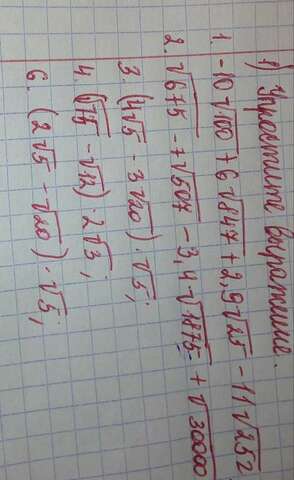 1) Упростите выражение.
1. -10√700 + 6√847 + 2,9√25 - 11√252
2. √675 - 7√507 - 3,4√1875 + √30000
3. (4√5 - 3√20) · √5;
4. (√15 - √12) 2√3;
6. (2√5 - √20) · √5;